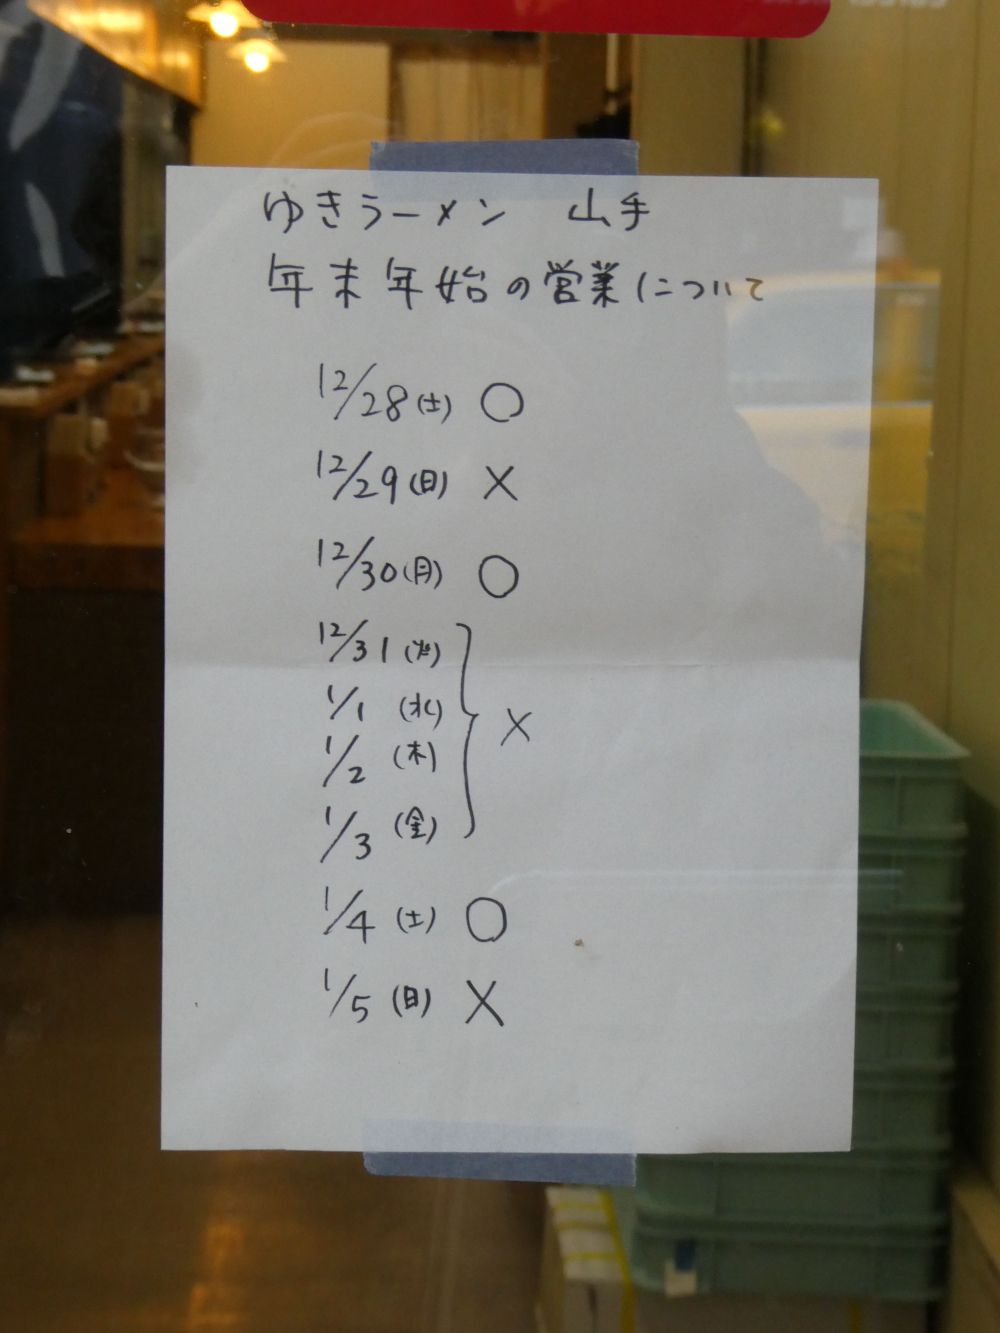 ゆきラーメン 山手
年末年始の営業について
12/28(土) ○
12/29(日) ×
12/30(月) ○
12/31(火)
1/1(水)
1/2(木)
1/3(金)
×
1/4(土) ○
1/5(日) ×